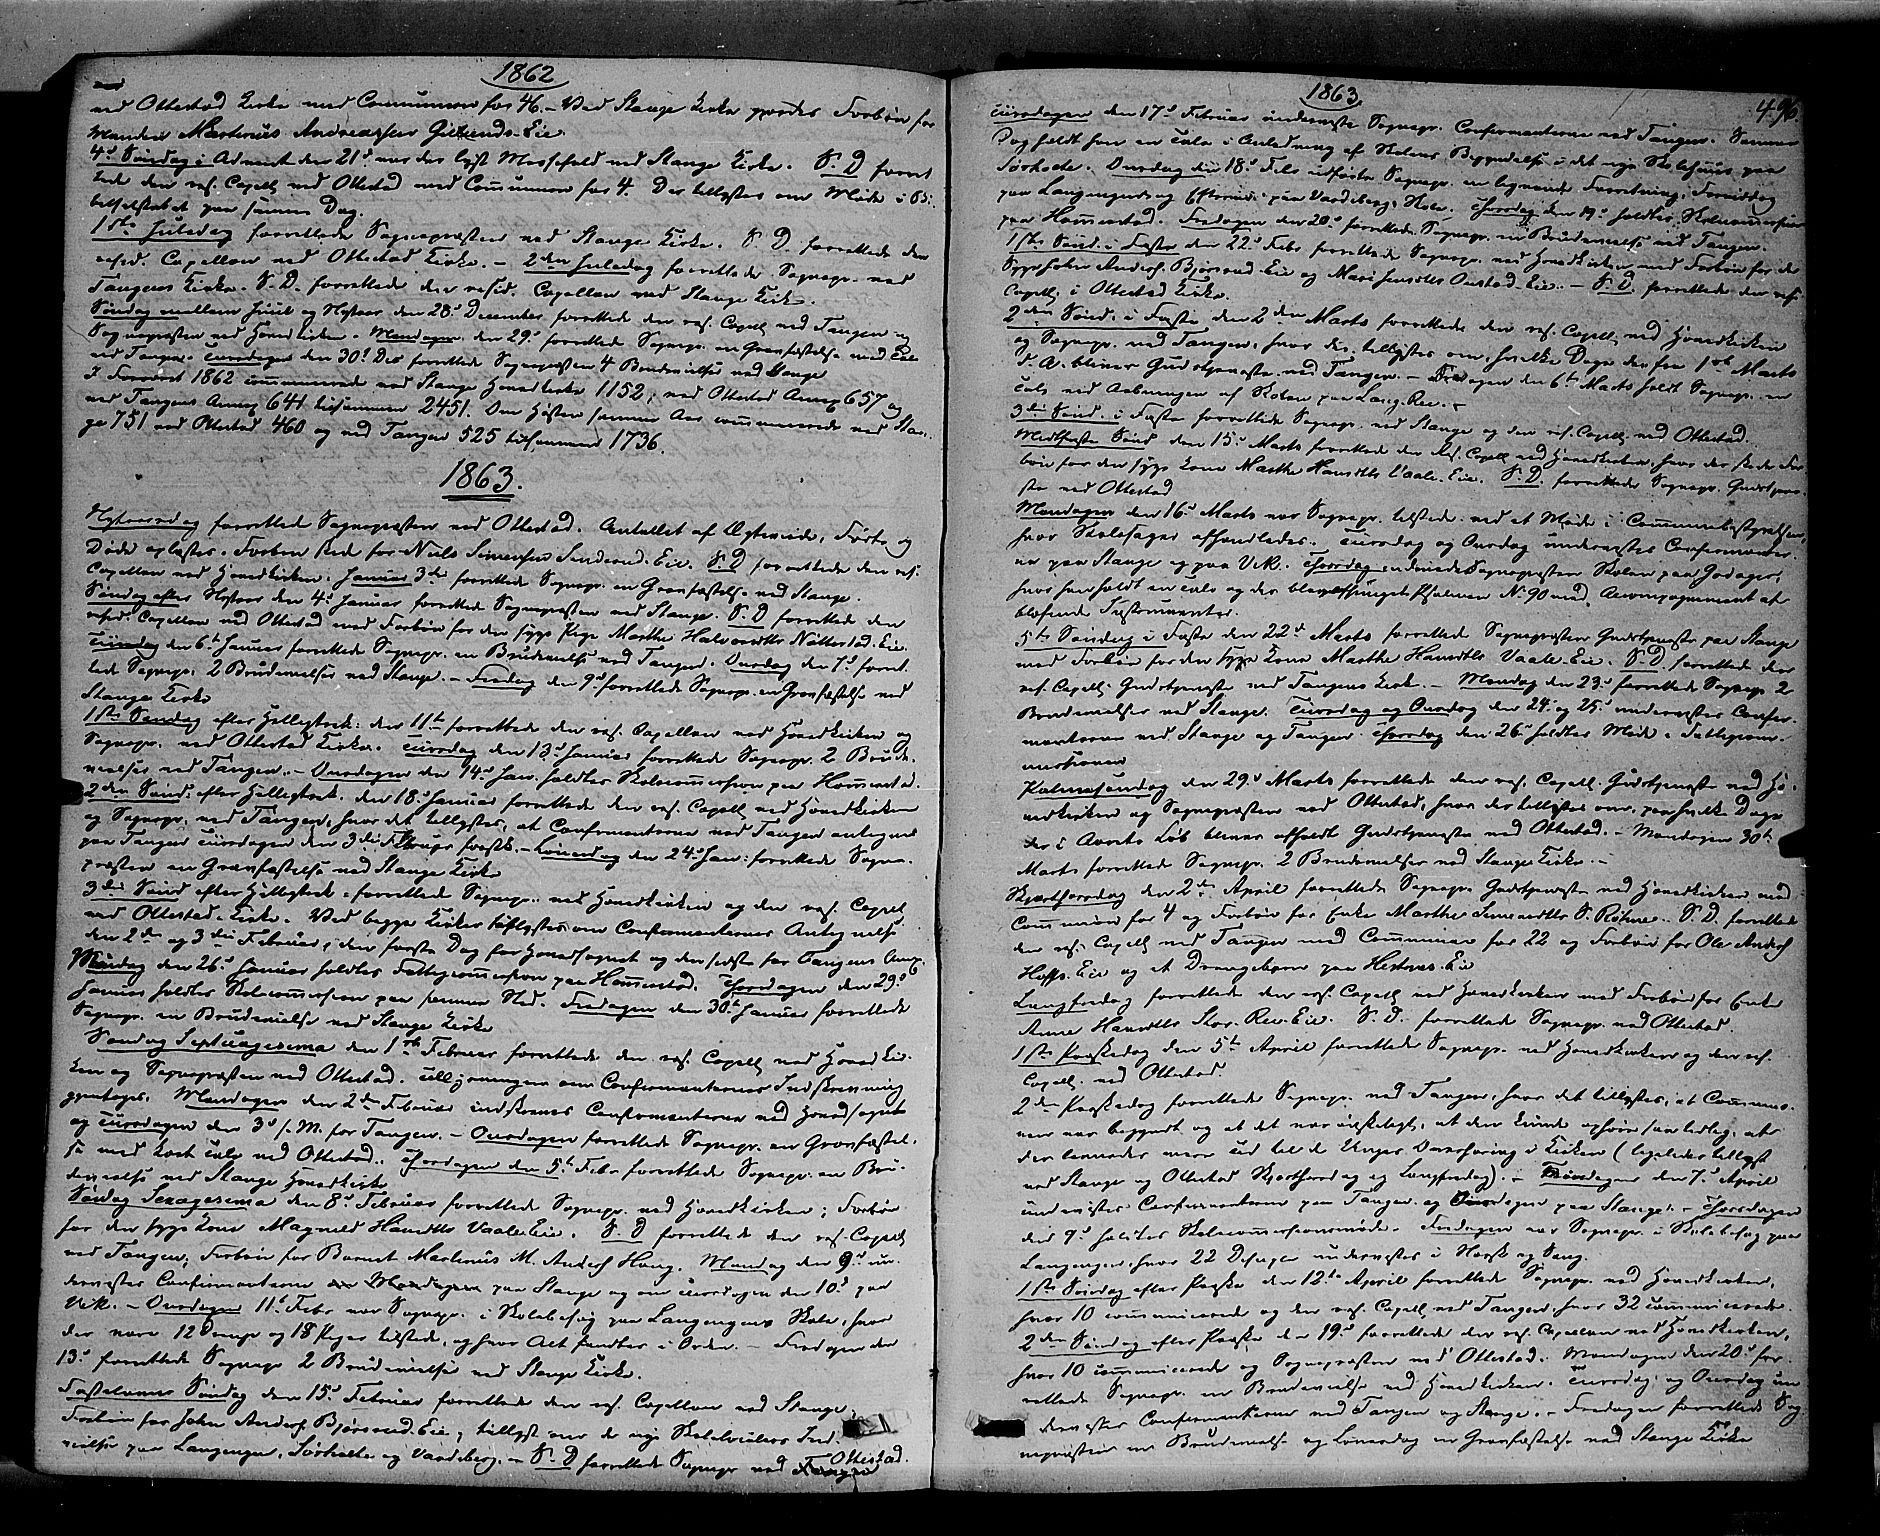 1862
ved Ottestad Kirke med Communion for 46. – Ved Stange Kirke gjordes Forbøn for
Manden Martinus Andreassen Gillunds Eie
4de Søndag i Advent den 21de var der lyst Messefald ved Stange Kirke. S. D. forret
tede den res. Capell ved Ottestad med Communion for 4. Der tillystes om Møde i
paa samme Dag.
1ste Juledag forrettede Sognepræsten ved Stange Kirke. S. D. forrettede den
resid. Capellan ved Ottestad Kirke. – 2den Juledag forrettede Sognepr. ved
Tangens Kirke. S. D. forrettede den resid. Capellan ved Stange Kirke.
Søndag mellem Juul og Nytaar den 28de December forrettede den res. Capell ved Tangen og
Sognepræsten ved Hovedkirken. Mandagen den 29de forrettede Sognepr. en Gravfæstelse med
ved Tangen. Tirsdagen den 30te Dec forrettede Sognepræsten 4 Brudevielser ved Stange
I Foraaret 1862 communicerede ved Stange Hovedkirke 1152, ved Ottestad Annex 657 og
ved Tangens Annex 641 tilsammen 2451. Om Høsten samme Aar communicerede ved Stan-
ge 751 ved Ottestad 460 og ved Tangen 525 tilsammen 1736.
1863.
Nytaarsdag forrettede Sognepræsten ved Ottestad. Antallet af Ægteviede, Fødte og
Døde oplæstes. Forbøn skede for Niels Simensen Sanderud Eie. S. D. forrettede den res.
Capellan ved Hovedkirken. Januar 3de forrettede Sognepr. en Gravfæstelse ved Stange.
Søndag efter Nytaar den 4de Januar forrettede Sognepræsten ved Stange. S. D. forrettede den
resid. Capellan ved Ottestad med Forbøn for den syge Pige Marthe Halvorsdtr Nøttestad Eie.
Tirsdag den 6te Januar forrettede Sognepr. en Brudevielse ved Tangen. Onsdag den 7de forret-
tede Sognepr. 2 Brudevielser ved Stange. – Fredag den 9de forrettede Sognepr. en Gravfæstelse ved
Stange Kirke
1ste Søndag efter Helligtrek. den 11te forrettede den res. Capellan ved Hovedkirken og
Sognepr. ved Ottestad Kirke. Tirsdag den 13de Januar forrettede Sognepr. 2 Brude-
vielser ved Tangen. – Onsdagen den 14de Jan. holdtes Skolecommission paa Hommerstad.
2den Sønd: efter Helligtrek. den 18de Januar forrettede den res. Capell ved Hovedkirken
og Sognepr. ved Tangen, hvor det tillystes, at Confirmanterne ved Tangen antegnes
paa Tangen Tirsdagen den 3die Februar førstk. – Løverdag den 24de Jan: forrettede Sogne-
præsten en Gravfæstelse ved Stange Kirke
3die Sønd efter Helligtrek. forrettede Sognepr. ved Hovedkirken og den res. Capell
ved Ottestad Kirke. Ved begge Kirker tillystes om Confirmanternes Antegnelse
den 2den og 3die Februar, den første Dag for Hovedsognet og den sidste for Tangens Annex
Mandag den 26de Januar holdtes Fattigcommission paa Hommerstad. Thorsdagen den 29de
Januar holdtes Skolecommission paa samme Sted. Fredagen den 30te Januar forrettede
Sognepr. en Brudevielse ved Stange Kirke
Søndag Septuagesima den 1ste Februar forrettede den res. Capell ved Hovedkir-
ken og Sognepræsten ved Ottestad. Tillysningen om Confirmanternes Indskrivning
gjentoges. Mandagen den 2den Februar indskreves Confirmanterne ved Hovedsognet
og Tirsdagen den 3de s. M. for Tangen. – Onsdagen forrettede Sognepr. en Gravfæstel-
se med kort Tale ved Ottestad. Thorsdagen den 5te Febr forrettede Sognepr. en Bru-
devielse ved Stange Hovedkirke
Søndag Sexagesima den 8de Februar forrettede Sognepr. ved Hovedkirken; Forbøn
for den syge Kone Magnild Hansdtr Vaale Eie. S. D. forrettede den res. Capell
ved Tangen, Forbøn for Barnet Martinus M. Anders Haug. Mandag den 9de un-
dervistes Confirmanterne paa Stange og om Tirsdagen den 10de paa
Vik. – Onsdagen 11te Febr var Sognepr. i Skolebesøg paa Langengens Skole, hvor
der vare 12 Drenge og 18 Piger tilstede, og hvor Alt fandtes i Orden. – Fredagen den
13de forrettede Sognepr 2 Brudevielser ved Stange Kirke.
Fastelavns Søndag den 15de Februar forrettede den res. Capellan ved Stange
Forbøn for John Anders Bjørnerud Eie; tillyst om de nye Skolelocalers Ind-
vielse paa Langengen, Sørholte og Vardeberg. – S. D forrettede Sognepr ved Ottestad.
1863
496
Tirsdagen den 17de Februar underviste Sognepr. Confirmanterne ved Tangen. Samme
Dag holdt han en Tale i Anledning af Skolens Begyndelse i det nye Skolehuus paa
Sørholte. Onsdag den 18de Febr udførte Sognepr. en lignende Forretning, Formiddag
paa Langengen og Eftermid. paa Vardebergs Skole. Thorsdag den 19de holdtes Skolecommission
paa Hommerstad. Fredagen den 20de forrettede Sognepr. en Brudevielse ved Tangen.
1ste Sønd. i Faste den 22de Febr forrettede Sognepr. ved Hovedkirken med Forbøn for de
Syge John Anders. Bjørnerud Eie og Mari Jensdtr Onstad Eie. – S. D. forrettede den res.
Capell i Ottestad Kirke.
2den Sønd. i Faste den 2den Marts forrettede den res. Capell ved Hovedkirken
og Sognepr. ved Tangen, hvor der tillystes om, hvilke Dage der fra 1ste Marts
d. A. bliver Gudstjeneste ved Tangen. – Fredagen den 6te Marts holdt Sognepr. en
Tale ved Aabningen af Skolen paa Lang-Rev. –
3die Sønd. i Faste forrettede Sognepr. ved Stange og den res. Capell ved Ottestad.
Midtfaste Sønd den 15de Marts forrettede den Res. Capell ved Hovedkirken, hvor der skede For-
bøn for den syge Kone Marthe Hansdtr Vaale Eie. S. D. forrettede Sognepr. Gudstjene-
ste ved Ottestad
Mandagen den 16de Marts var Sognepr. tilstede ved et Møde i Communebestyrelsen,
hvor Skolesager afhandledes. Tirsdag og Onsdag undervistes Confirmanter-
ne paa Stange og paa Vik. Thorsdag indviede Sognepræsten Skolen paa Godager,
hvor han holdt en Tale og der blev afsunget Psalmen N. 90 med Accompagnement af
blæsende Instrumenter.
5te Søndag i Faste den 22de Marts forrettede Sognepræsten Gudstjeneste paa Stange
med Forbøn for den syge Kone Marthe Hansdtr Vaale Eie. S. D. forrettede den
res. Capell. Gudstjeneste ved Tangens Kirke. – Mandag den 23de forrettede Sognepr 2
Brudevielser ved Stange. Tirsdag og Onsdag den 24 og 25de undervistes Confir-
manterne ved Stange og Tangen. Thorsdag den 26de holdtes Møde i Fattigcom-
missionen
Palmesøndag den 29de Marts forrettede den res. Capell. Gudstjeneste ved Ho-
vedkirken og Sognepræsten ved Ottestad, hvor der tillystes om, paa hvilke Dage
der i Aarets Løb bliver afholdt Gudstjeneste ved Ottestad. – Mandagen 30te
Marts forrettede Sognepr. 2 Brudevielser ved Stange Kirke. –
Skjærthorsdag den 2den April forrettede Sognepr. Gudstjeneste ved Hovedkirken med
Communion for 4 og Forbøn for Enke Marthe Simensdtr S. Røhne. S. D. forrettede
den res. Capell ved Tangen med Communion for 22 og Forbøn for Ole Anders
Hoffs Eie og et Drengebarn paa Hestnes Eie
Langfredag forrettede den res. Capell ved Hovedkirken med Forbøn for Enke
Anne Hansdtr Stor-Rev. Eie. S. D. forrettede Sognepr. ved Ottestad.
1ste Paaskedag den 5te April forrettede Sognepr. ved Hovedkirken og den res.
Capell. ved Ottestad.
2den Paaskedag forrettede Sognepr. ved Tangen, hvor det tillystes, at Commu-
nionen var begyndt og at det var ønskeligt, at den kunde ophøre saa tidlig, at
der levnedes mere Tid til de Unges Overhøring i Kirken (ligeledes tillyst
ved Stange og Ottestad Skjærthorsdag og Langfredag). – Tirsdagen den 7de April
undervistes Confirmanterne paa Tangen og Onsdagen paa Stange. – Thorsdagen
den 9de holdtes Skolecommissionsmøde. Fredagen var Sognepr. i Skolebesøg paa
Langengen, hvor 22 Drenge undervistes i Norsk og Sang.
1ste Søndag efter Paaske den 12te April forrettede Sognepr. ved Hovedkirken,
hvor 10 communicerede og den res. Capell. ved Tangen, hvor 32 communicerede.
2den Søndag efter Paaske den 19de forrettede den res. Capellan ved Hovedkirken,
hvor 10 communicerede og Sognepræsten ved Ottestad. Mandagen den 20de for-
rettede Sognepr. en Brudevielse ved Hovedkirken. Tirsdag og Onsdag un
dervistes Confirmanterne ved Tangen og Stange. – Fredagen forrettede Sog
nepræsten en Brudevielse og Løverdag en Gravfæstelse ved Stange Kirke